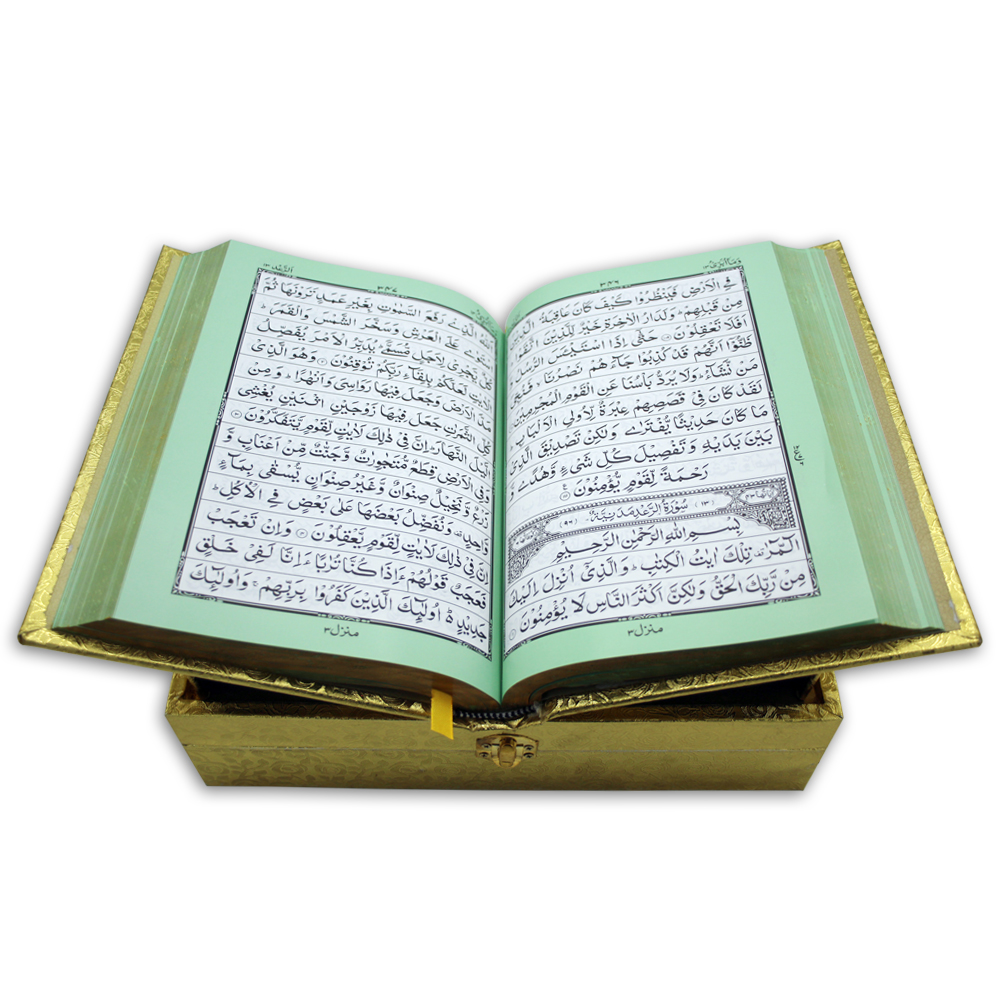 وَمَآ اُبَرِّئُ ١٣
٣٤٦
فِي الْاَرْضِ فَيَنْظُرُوْا كَيْفَ كَانَ عَاقِبَةُ الَّذِيْنَ
مِنْ قَبْلِهِمْ ؕ وَلَدَارُ الْاٰخِرَةِ خَيْرٌ لِّلَّذِيْنَ اتَّقَوْا
اَفَلَا تَعْقِلُوْنَ حَتّٰٓى اِذَا اسْتَيْـَٔسَ الرُّسُلُ
ظَنُّوْٓا اَنَّهُمْ قَدْ كُذِبُوْا جَآءَهُمْ نَصْرُنَا
مَنْ نَّشَآءُ ؕ وَلَا يُرَدُّ بَاْسُنَا عَنِ الْقَوْمِ الْمُجْرِمِيْنَ
لَقَدْ كَانَ فِيْ قَصَصِهِمْ عِبْرَةٌ لِّاُولِي الْاَلْبَابِ
مَا كَانَ حَدِيْثًا يُّفْتَرٰى وَلٰكِنْ تَصْدِيْقَ الَّذِيْ
بَيْنَ يَدَيْهِ وَتَفْصِيْلَ كُلِّ شَيْءٍ وَّهُدًى وَّ
رَحْمَةً لِّقَوْمٍ يُّؤْمِنُوْنَ
(١٣) سُوْرَةُ الرَّعْدِ مَدَنِيَّةٌ (٩٦)
بِسْمِ اللّٰهِ الرَّحْمٰنِ الرَّحِيْمِ
الٓمّٓرٰ تِلْكَ اٰيٰتُ الْكِتٰبِ ؕ وَالَّذِيْٓ اُنْزِلَ اِلَيْكَ
مِنْ رَّبِّكَ الْحَقُّ وَلٰكِنَّ اَكْثَرَ النَّاسِ لَا يُؤْمِنُوْنَ
مَنْزِل ٣
الرَّعْد ١٣
٣٤٧
الَّذِيْ رَفَعَ السَّمٰوٰتِ بِغَيْرِ عَمَدٍ تَرَوْنَهَا ثُمَّ
عَلَى الْعَرْشِ وَسَخَّرَ الشَّمْسَ وَالْقَمَرَ ؕ
كُلٌّ يَّجْرِيْ لِاَجَلٍ مُّسَمًّى ؕ يُدَبِّرُ الْاَمْرَ يُفَصِّلُ
لَعَلَّكُمْ بِلِقَآءِ رَبِّكُمْ تُوْقِنُوْنَ وَهُوَ الَّذِيْ
الْاَرْضَ وَجَعَلَ فِيْهَا رَوَاسِيَ وَاَنْهٰرًا ؕ وَمِنْ
كُلِّ الثَّمَرٰتِ جَعَلَ فِيْهَا زَوْجَيْنِ اثْنَيْنِ يُغْشِي
الَّيْلَ النَّهَارَ ؕ اِنَّ فِيْ ذٰلِكَ لَاٰيٰتٍ لِّقَوْمٍ يَّتَفَكَّرُوْنَ
وَفِي الْاَرْضِ قِطَعٌ مُّتَجٰوِرٰتٌ وَّجَنّٰتٌ مِّنْ اَعْنَابٍ وَّ
زَرْعٌ وَّنَخِيْلٌ صِنْوَانٌ وَّغَيْرُ صِنْوَانٍ يُّسْقٰى بِمَآءٍ
وَّاحِدٍ وَنُفَضِّلُ بَعْضَهَا عَلٰى بَعْضٍ فِي الْاُكُلِ ؕ
اِنَّ فِيْ ذٰلِكَ لَاٰيٰتٍ لِّقَوْمٍ يَّعْقِلُوْنَ وَاِنْ تَعْجَبْ
فَعَجَبٌ قَوْلُهُمْ ءَاِذَا كُنَّا تُرٰبًا ءَاِنَّا لَفِيْ خَلْقٍ
جَدِيْدٍ ؕ اُولٰٓئِكَ الَّذِيْنَ كَفَرُوْا بِرَبِّهِمْ ۚ وَاُولٰٓئِكَ
مَنْزِل ٣